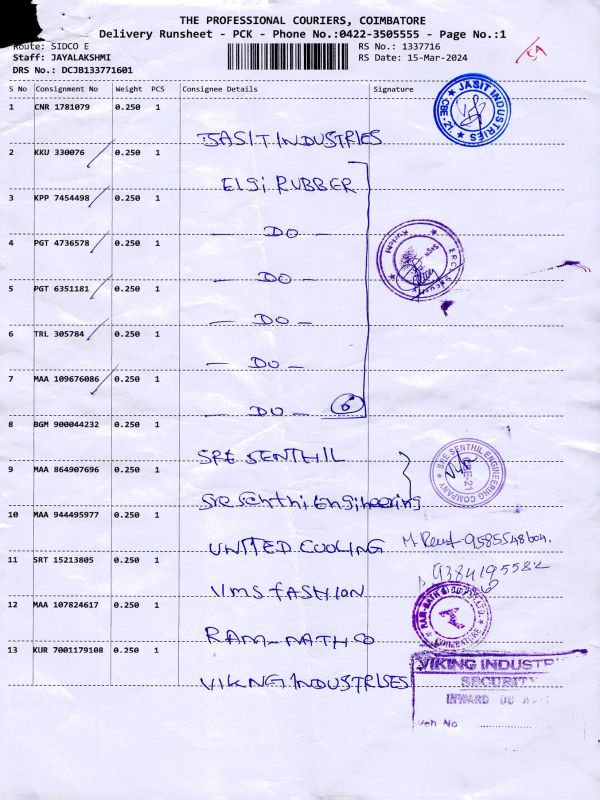 THE PROFESSIONAL COURIERS, COIMBATORE
Delivery Runsheet - PCK - Phone No.:0422-3505555 - Page No.:1
Route: SIDCO E
RS No.: 1337716
Staff: JAYALAKSHMI
RS Date: 15-Mar-2024
DRS No.: DCJB133771601
S No Consignment No Weight PCS Consignee Details Signature
1 CNR 1781079 0.250 1
JASIT INDUSTRIES
JASIT INDUSTRIES CBE-21.
2 KKU 330076 0.250 1
ELGI RUBBER
3 KPP 7454498 0.250 1
— DO —
4 PGT 4736578 0.250 1
— DO —
5 PGT 6351181 0.250 1
— DO —
6 TRL 305784 0.250 1
— DO —
7 MAA 109676086 0.250 1
— DO — 6
8 BGM 900044232 0.250 1
SRE SENTHIL
SRE SENTHIL ENGINEERING COMPANY
9 MAA 864907696 0.250 1
Sre Senthil Engineering
10 MAA 944495977 0.250 1
UNITED COOLING
11 SRT 15213805 0.250 1
VMS FASHION
9384195582
12 MAA 107824617 0.250 1
RAM-NATH CO
13 KUR 7001179108 0.250 1
VIKING INDUSTRISES
VIKING INDUSTR
SECURITY
INWARD
Veh No